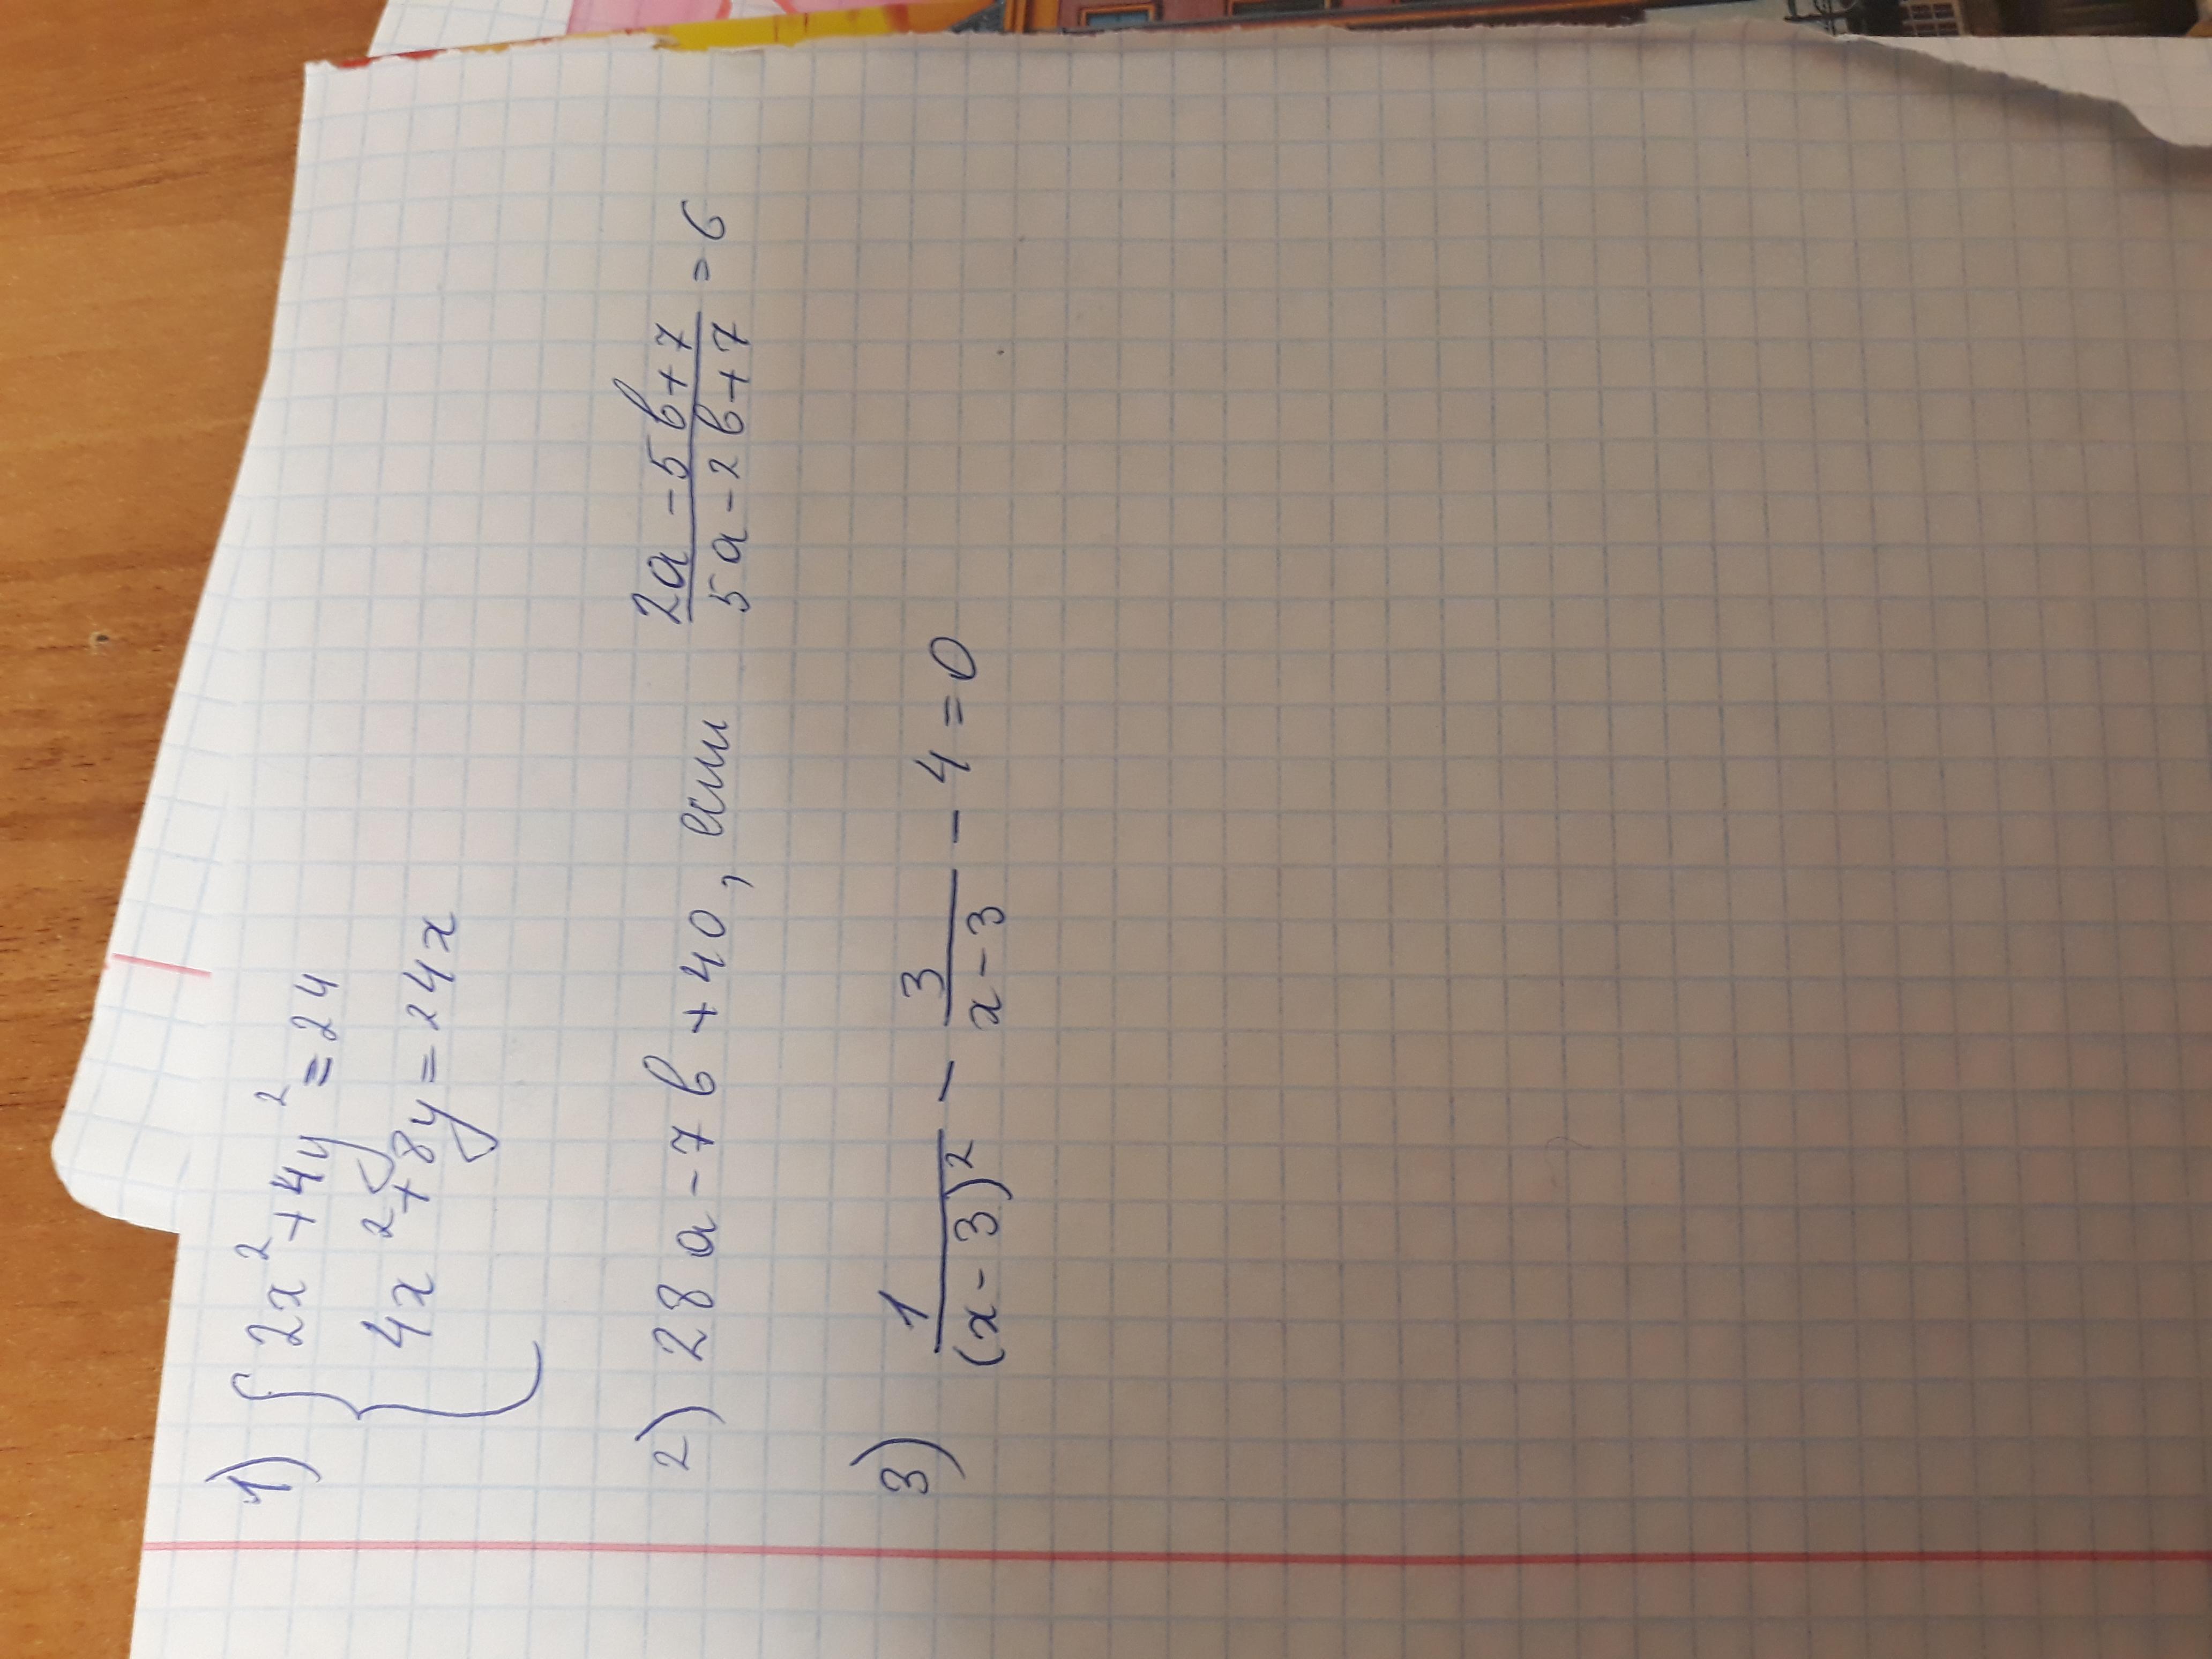 1) { 2x² + 4y² = 24
4x² + 8y = 24x
2) 28a - 7b + 40, если (2a - 5b + 7)/(5a - 2b + 7) = 6
3) 1/(x - 3)² - 3/(x - 3) - 4 = 0